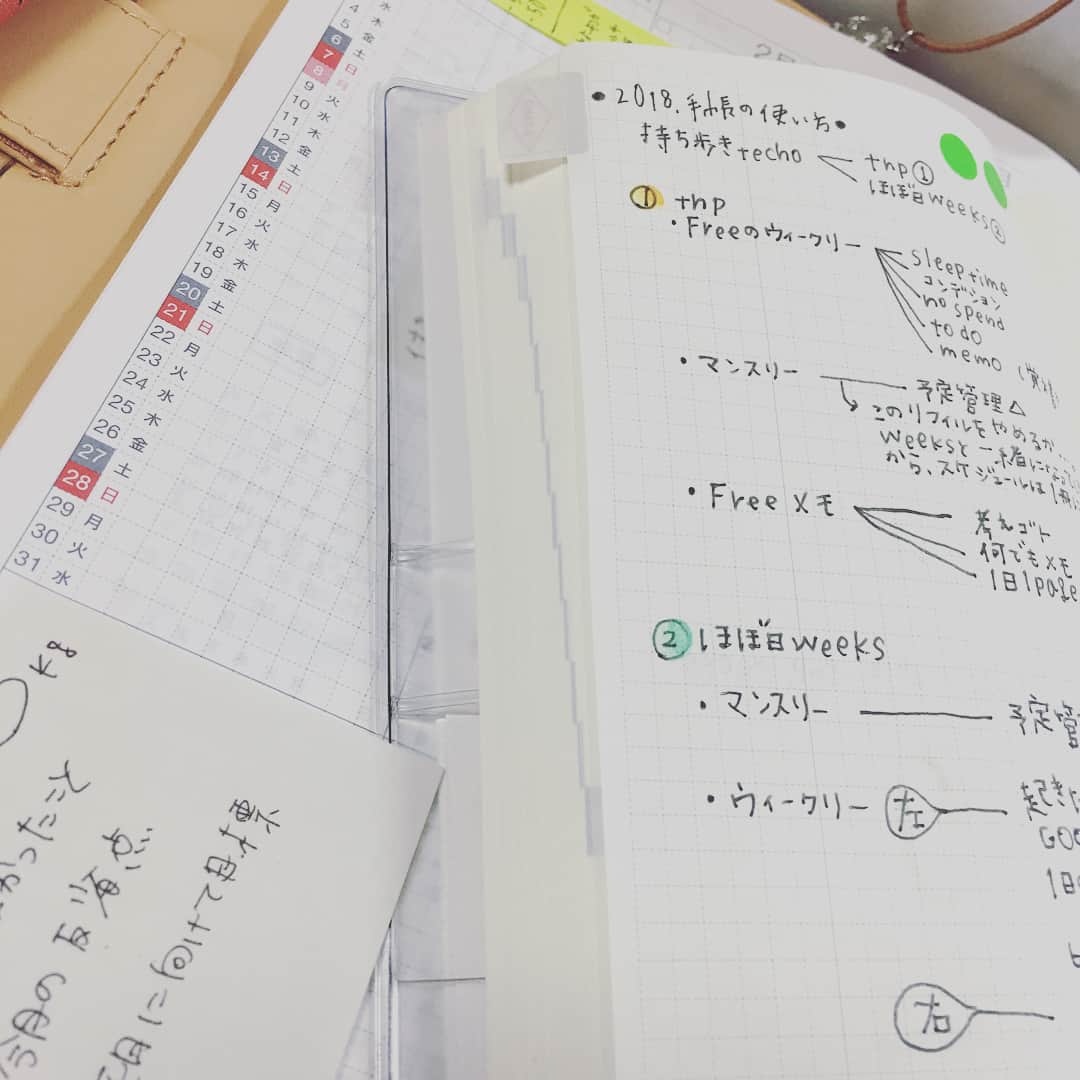 4 水
5 木
6 金
7 土
8 日
9 月
10 火
11 水
12 木
13 金
14 土
15 日
15 月
16 火
17 水
18 木
19 金
20 土
21 日
22 月
23 火
24 水
25 木
26 金
27 土
28 日
29 月
30 火
31 水
kg
かったこと
今月の反省点
月に向けて目標
• 2018.手帳の使い方 •
持ち歩きtecho
tnp①
ほぼ日weeks②
① tnp
・Freeのウィークリー
sleep time
コンデション
no spend
to do
memo
・マンスリー
予定管理△
このリフィルをやめるか...
weeksと一緒に
から、スケジュールは1冊
・Freeメモ
考えゴト
何でもメモ
1日1page
② ほぼ日weeks
・マンスリー
予定管
・ウィークリー
左
起き
GOO
1日
右